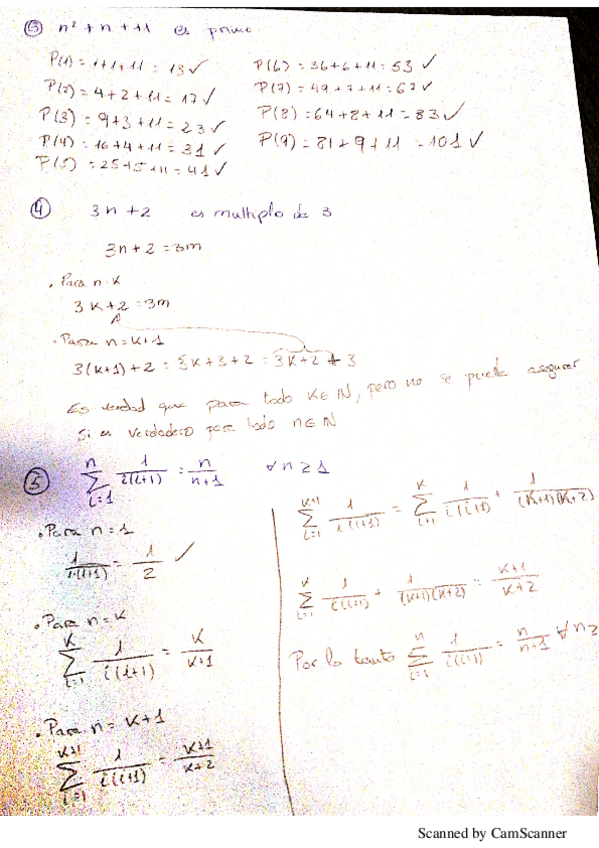 ③ n² + n + 11 es primo
P(1) = 1+1+11 = 13 ✓
P(2) = 4+2+11 = 17 ✓
P(3) = 9+3+11 = 23 ✓
P(4) = 16+4+11 = 31 ✓
P(5) = 25+5+11 = 41 ✓
P(6) = 36+6+11 = 53 ✓
P(7) = 49+7+11 = 67 ✓
P(8) = 64+8+11 = 83 ✓
P(9) = 81+9+11 = 101 ✓
④ 3n+2 es multiplo de 3
3n+2 = 3m
• Para n=k
3k+2 = 3m
• Para n=k+1
3(k+1)+2 = 3k+3+2 = 3k+2+3
Es verdad que para todo k∈ℕ, pero no se puede asegurar
si es verdadero para todo n∈ℕ
⑤ ∑_{i=1}^{n} 1/(i(i+1)) = n/(n+1) ∀n≥1
• Para n=1
1/(1·(1+1)) = 1/2 ✓
• Para n=k
∑_{i=1}^{k} 1/(i(i+1)) = k/(k+1)
• Para n=k+1
∑_{i=1}^{k+1} 1/(i(i+1)) = (k+1)/(k+2)
∑_{i=1}^{k+1} 1/(i(i+1)) = ∑_{i=1}^{k} 1/(i(i+1)) + 1/((k+1)(k+2))
∑_{i=1}^{k} 1/(i(i+1)) + 1/((k+1)(k+2)) = (k+1)/(k+2)
Por lo tanto ∑_{i=1}^{n} 1/(i(i+1)) = n/(n+1) ∀n≥
Scanned by CamScanner